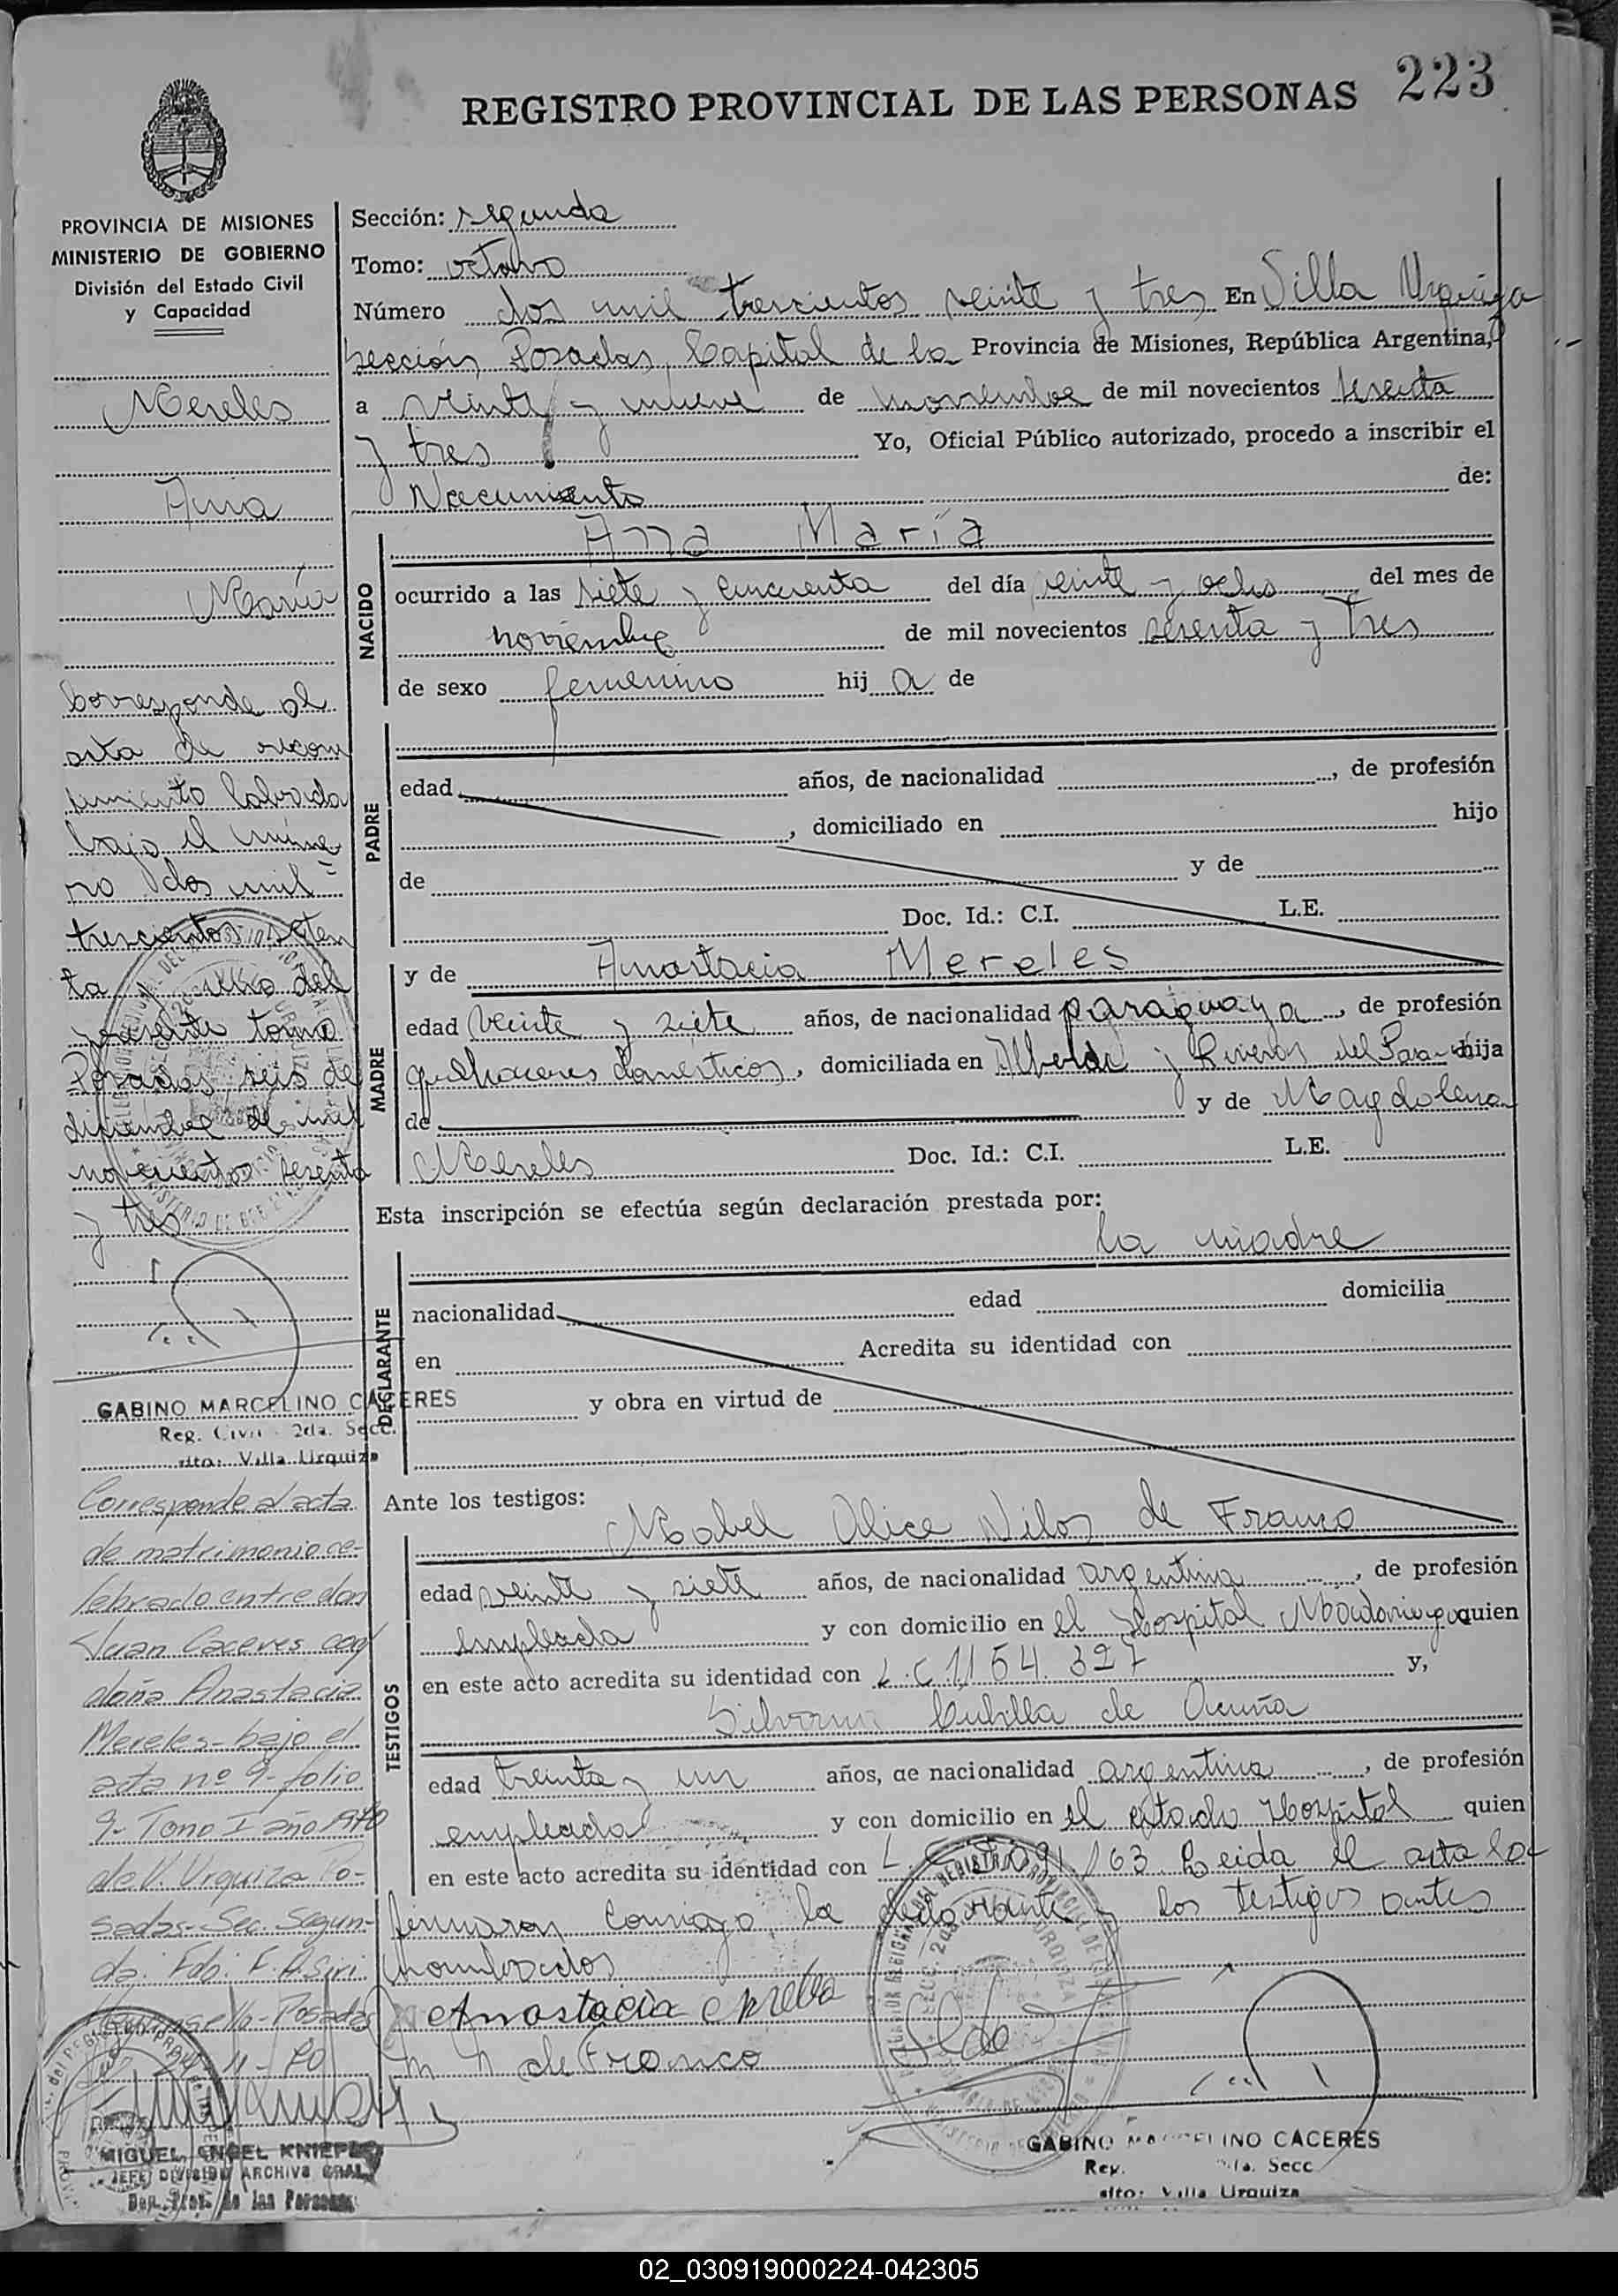 REGISTRO PROVINCIAL DE LAS PERSONAS 223
PROVINCIA DE MISIONES
MINISTERIO DE GOBIERNO
División del Estado Civil
y Capacidad
Mereles
Ana
María
Corresponde al
acta de recono
cimiento labrada
bajo el núme
ro dos mil
trescientos seten
ta y del
presente tomo
Posadas, seis de
diciembre de mil
novecientos sesenta
y tres
GABINO MARCELINO CACERES
Reg. Civil 2da. Secc.
Villa Urquiza
Corresponde al acta
de matrimonio ce-
lebrado entre don
Juan Caceres con
doña Anastacia
Mereles - bajo el
acta nº 9 - folio
9 - Tomo I año 1970
de V. Urquiza Po-
sadas - Sec. Segun-
da. Fdo:
Posadas
MIGUEL ANGEL
JEFE DIVISION ARCHIVO GRAL
Dep. Prov. de las Personas
Sección: segunda
Tomo: octavo
Número dos mil trescientos veinte y tres En Villa Urquiza
sección Posadas, Capital de la Provincia de Misiones, República Argentina,
a veinte y nueve de noviembre de mil novecientos sesenta
y tres Yo, Oficial Público autorizado, procedo a inscribir el
Nacimiento de:
NACIDO
Ana María
ocurrido a las siete y cincuenta del día veinte y ocho del mes de
noviembre de mil novecientos sesenta y tres
de sexo femenino hij a de
PADRE
edad años, de nacionalidad , de profesión
, domiciliado en hijo
de y de
Doc. Id.: C.I. L.E.
MADRE
y de Anastacia Mereles
edad veinte y siete años, de nacionalidad paraguaya , de profesión
quehaceres domésticos, domiciliada en Alberdi y Riveros del Para hija
de y de Magdalena
Mereles Doc. Id.: C.I. L.E.
Esta inscripción se efectúa según declaración prestada por:
la madre
DECLARANTE
nacionalidad edad domicilia
en Acredita su identidad con
y obra en virtud de
Ante los testigos:
TESTIGOS
Mabel Alice de Franco
edad veinte y siete años, de nacionalidad argentina , de profesión
empleada y con domicilio en el Hospital Madariaga quien
en este acto acredita su identidad con L.C. y,
Cubilla de Acuña
edad treinta y un años, de nacionalidad argentina , de profesión
empleada y con domicilio en el citado Hospital quien
en este acto acredita su identidad con L.C. Leida el acta la
firmaron conmigo la declarante y los testigos antes
nombrados
Anastacia
de Franco
GABINO MARCELINO CACERES
Reg. 2da. Secc
Villa Urquiza
02_030919000224-042305